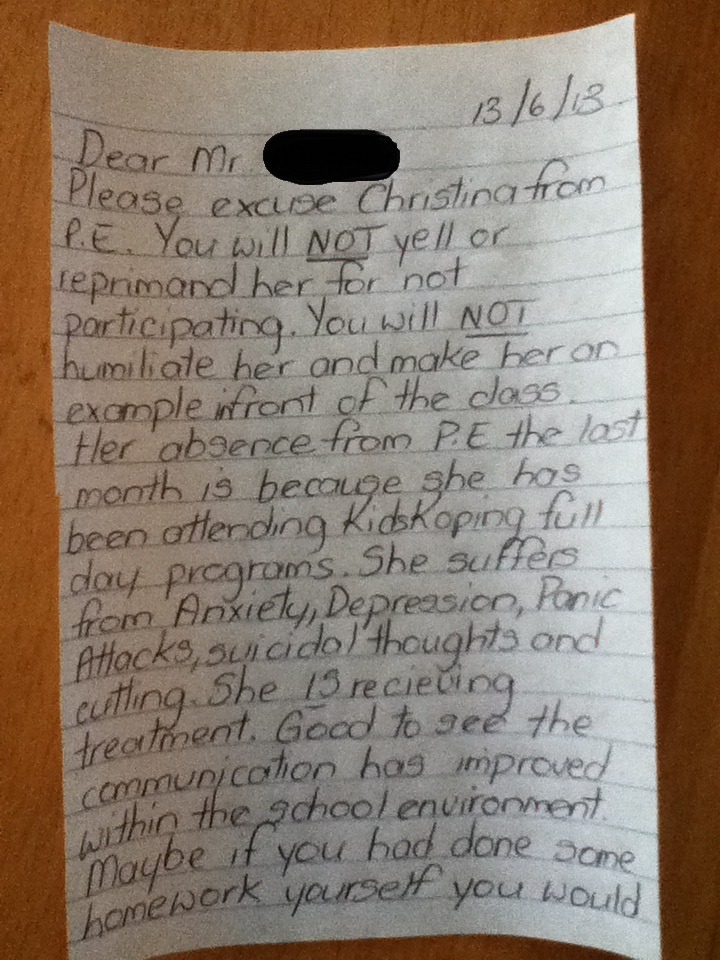 13/6/13
Dear Mr
Please excuse Christina from
P.E. You will NOT yell or
reprimand her for not
participating. You will NOT
humiliate her and make her an
example infront of the class.
Her absence from P.E the last
month is because she has
been attending KidsKoping full
day programs. She suffers
from Anxiety, Depression, Panic
Attacks, suicidal thoughts and
cutting. She IS recieving
treatment. Good to see the
communication has improved
within the school environment.
Maybe if you had done some
homework yourself you would